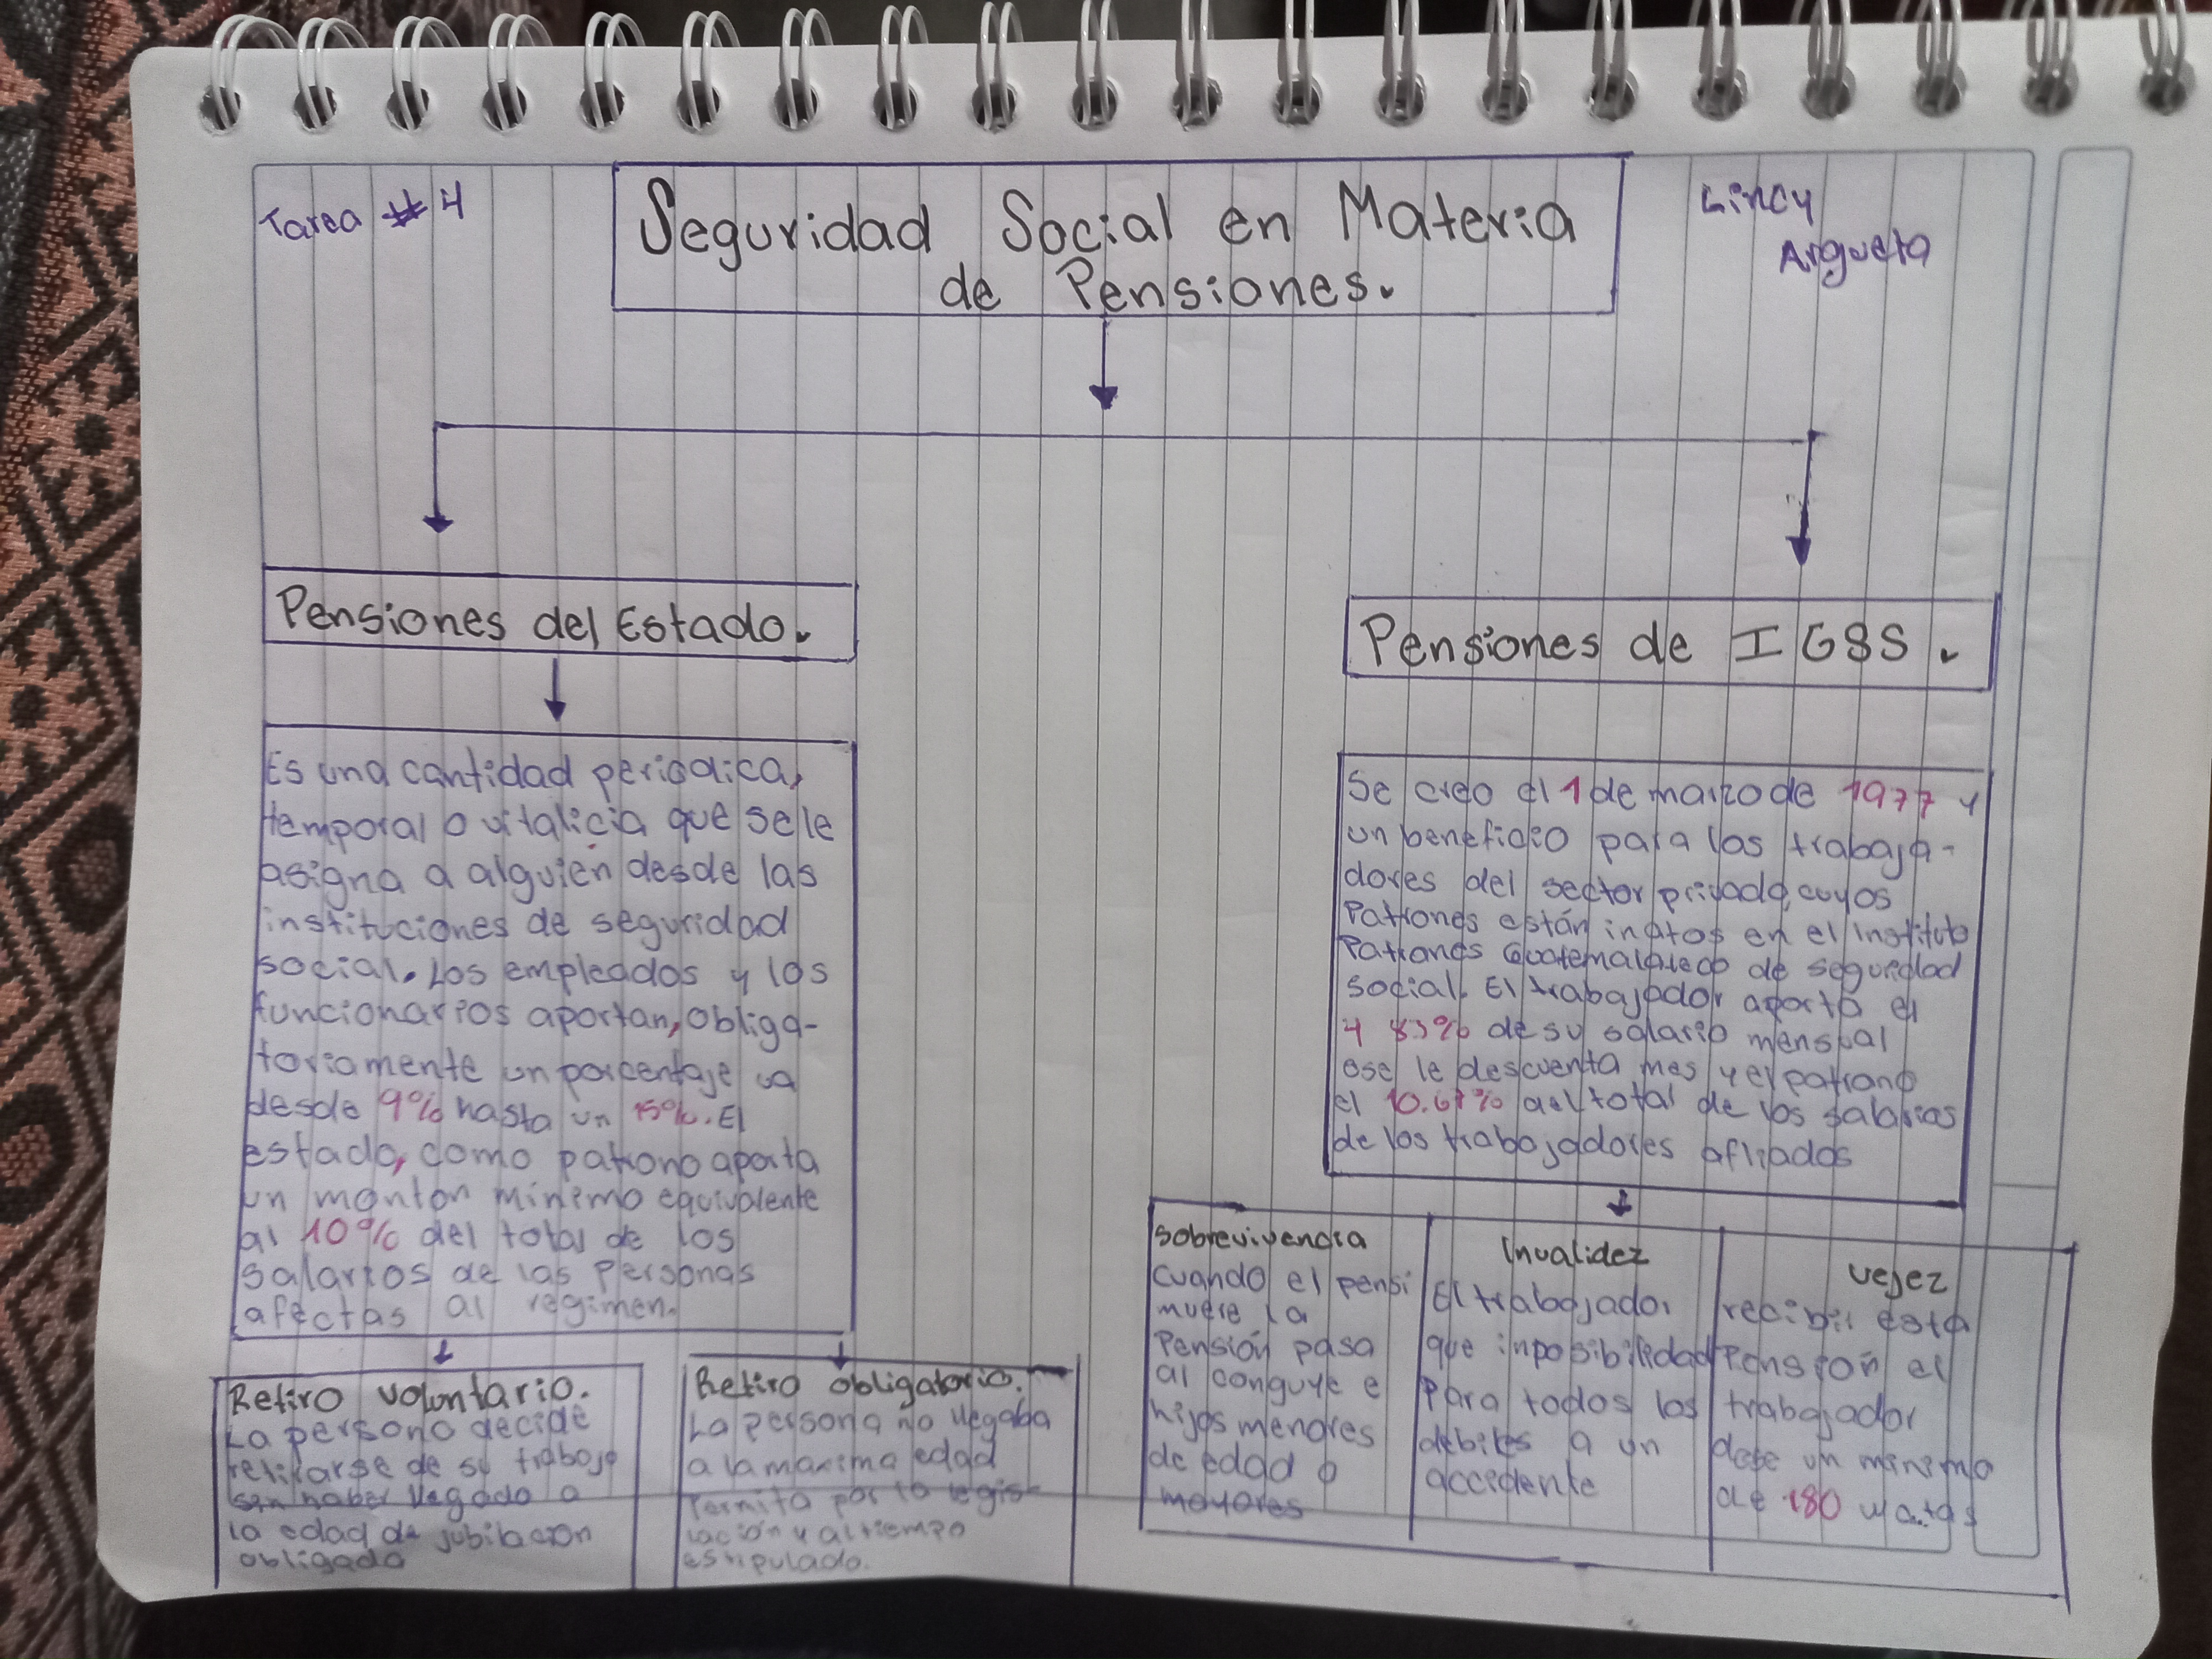 Tarea # 4
Seguridad Social en Materia
de Pensiones.
Lincy
Argueta
Pensiones del Estado.
Es una cantidad periodica,
temporal o vitalicia que se le
asigna a alguien desde las
instituciones de seguridad
social. Los empleados y los
funcionarios aportan, obliga-
toriamente un porcentaje va
desde 9% hasta un 15%. El
estado, como patrono aporta
un monton minimo equivalente
al 10% del total de los
salarios de las Personas
afectas al regimen.
Retiro voluntario.
La persona decide
retirarse de su trabajo
sin haber llegado a
la edad de jubilacion
obligada
Retiro obligatorio.
La persona no llegaba
a la maxima edad
Permita por la legis-
lación y al tiempo
estipulado.
Pensiones de IGSS.
Se creo el 1 de marzo de 1977 y
un beneficio para los trabaja-
dores del sector privado, cuyos
Patrones están inatos en el Instituto
Patrones Guatemalteco de seguridad
social. El trabajador aporta el
4 83% de su salario mensual
ese le descuenta mes y el patrono
el 10.67% del total de los salarios
de los trabajadores afliados
Sobrevivencia
Cuando el pensi
muere la
Pensión pasa
al conguye e
hijos menores
de edad o
mayores
Invalidez
El trabajador
que inposibilidad
Para todos los
debiles a un
accidente
vejez
recibir esta
Pension el
trabajador
debe un minimo
de 180